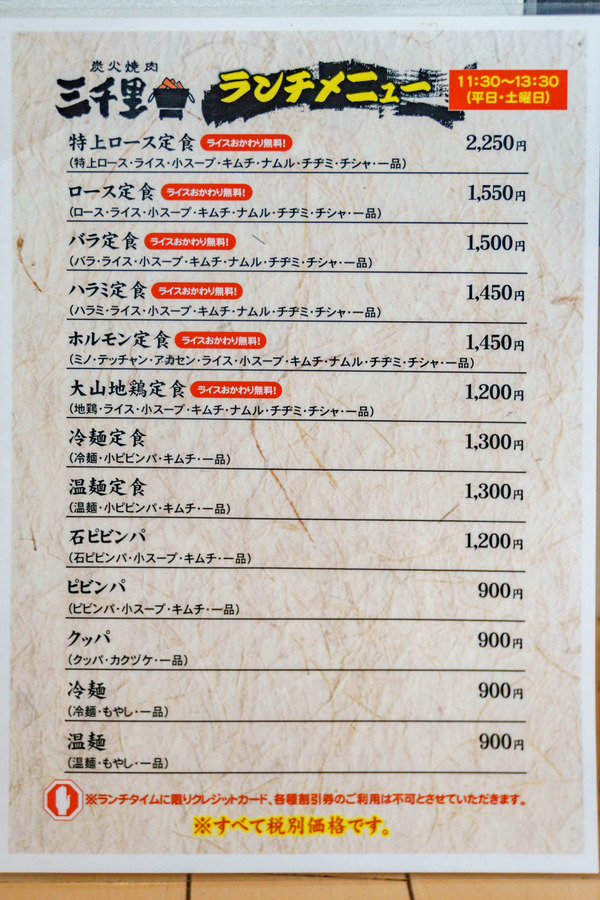 炭火焼肉
三千里
ランチメニュー
11:30～13:30
(平日・土曜日)
特上ロース定食 ライスおかわり無料! 2,250円
(特上ロース・ライス・小スープ・キムチ・ナムル・チヂミ・チシャ・一品)
ロース定食 ライスおかわり無料! 1,550円
(ロース・ライス・小スープ・キムチ・ナムル・チヂミ・チシャ・一品)
バラ定食 ライスおかわり無料! 1,500円
(バラ・ライス・小スープ・キムチ・ナムル・チヂミ・チシャ・一品)
ハラミ定食 ライスおかわり無料! 1,450円
(ハラミ・ライス・小スープ・キムチ・ナムル・チヂミ・チシャ・一品)
ホルモン定食 ライスおかわり無料! 1,450円
(ミノ・テッチャン・アカセン・ライス・小スープ・キムチ・ナムル・チヂミ・チシャ・一品)
大山地鶏定食 ライスおかわり無料! 1,200円
(地鶏・ライス・小スープ・キムチ・ナムル・チヂミ・チシャ・一品)
冷麺定食 1,300円
(冷麺・小ビビンバ・キムチ・一品)
温麺定食 1,300円
(温麺・小ビビンバ・キムチ・一品)
石ビビンバ 1,200円
(石ビビンバ・小スープ・キムチ・一品)
ビビンバ 900円
(ビビンバ・小スープ・キムチ・一品)
クッパ 900円
(クッパ・カクヅケ・一品)
冷麺 900円
(冷麺・もやし・一品)
温麺 900円
(温麺・もやし・一品)
※ランチタイムに限りクレジットカード、各種割引券のご利用は不可とさせていただきます。
※すべて税別価格です。